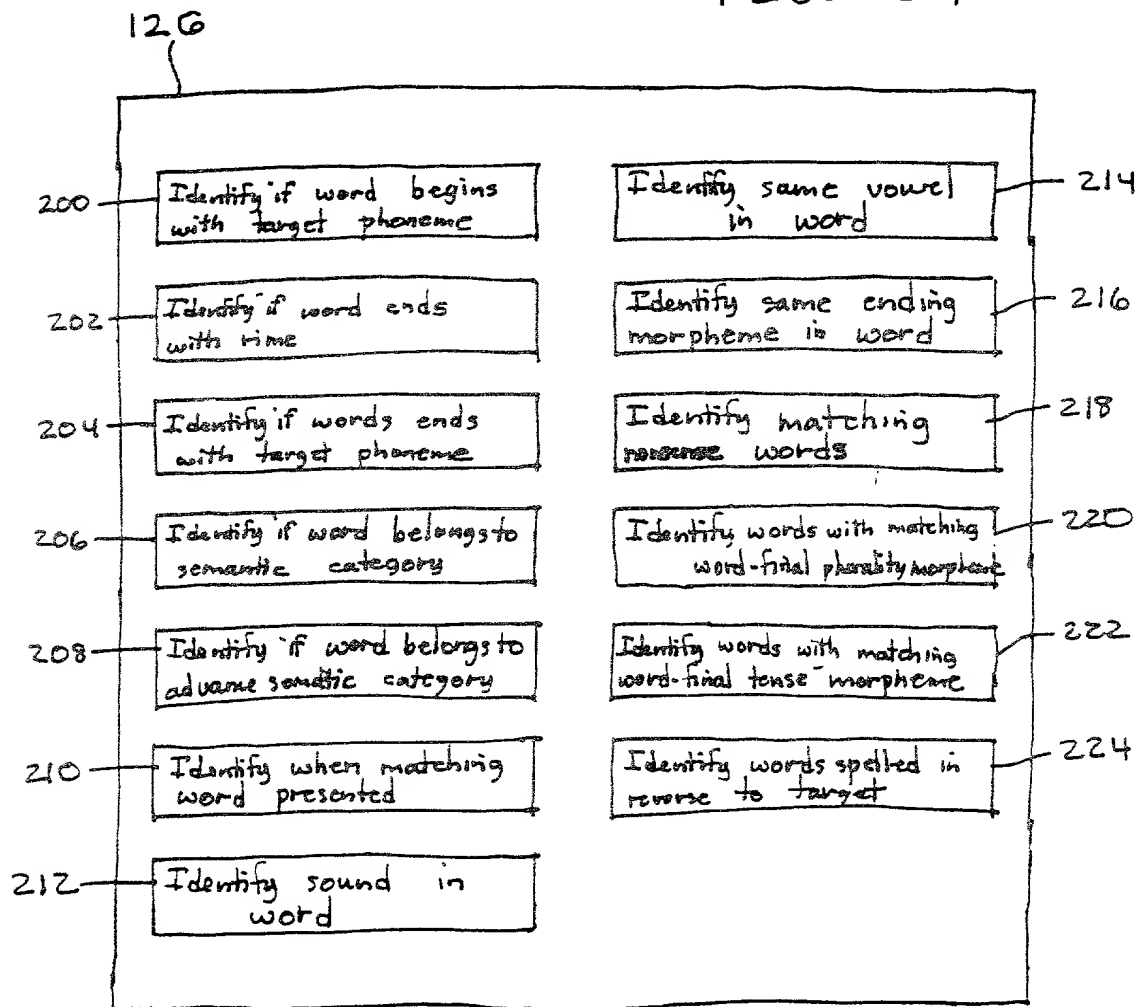 126
200
Identify if word begins
with target phoneme
202
Identify if word ends
with rime
204
Identify if words ends
with target phoneme
206
Identify if word belongs to
semantic category
208
Identify if word belongs to
category
210
Identify when matching
word presented
212
Identify sound in
word
214
Identify same vowel
in word
216
Identify same ending
morpheme in word
218
Identify matching
nonsense words
220
Identify words with matching
word-final plurality morpheme
222
Identify words with matching
word-final tense morpheme
224
Identify words spelled in
reverse to target